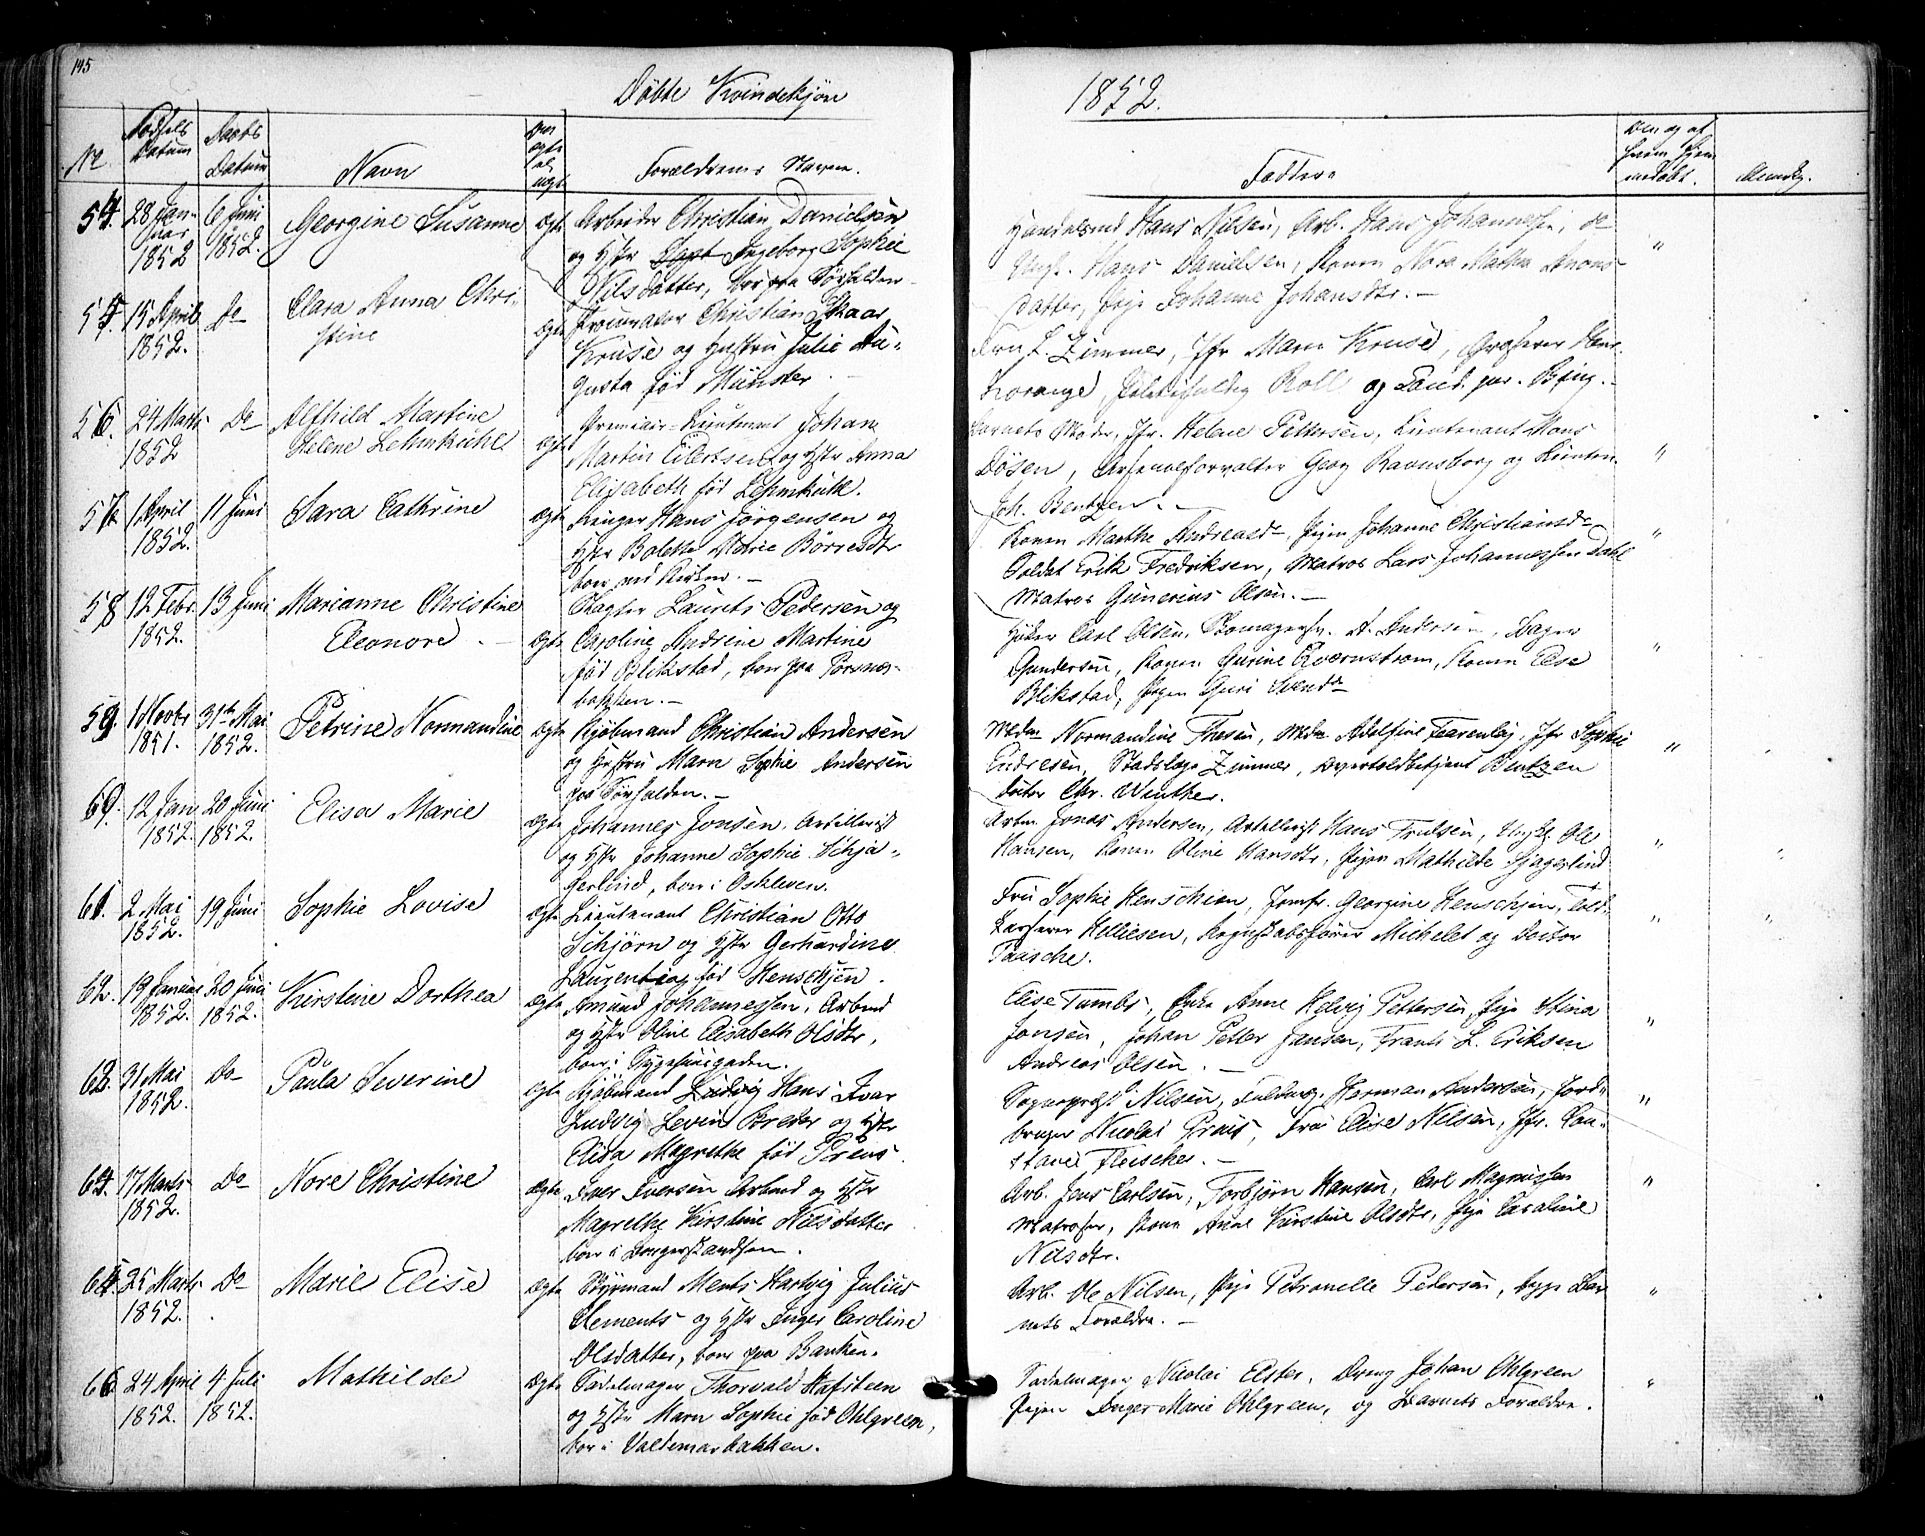 145
Döbte Kvindekjön
1852.
No
Födsels Datum
Daabs Datum
Navn
Forældrenes Navne.
Faddere
Anmærkn.
54. 28 Januar 1852 6 Juni 1852. Georgine Susanne Ægte
Arbeider Christian Danielsen
og Hstr Ingeborg Sophie
Nilsdatter, boe paa Törfalden
Hans Nilsen, Arb. Hans Johannessen, do
Ungk. Hans Danielsen, Konen
datter, Pige Johanne Johansdtr. –
55. 15 April 1852. Do Clara Anna Christine Ægte
Procurator Christian Skaar
Kruse og Hustru Julie Augusta
født Münster.
Fru L. Zimmer, Jfr Maren Kruse,
Roll og Cand. jur. Bing. –
56. 24 Marts 1852 Do Alfhild Martine
Helene Lehmkühl Ægte
Premier-Lieutenant Johan
Martin Eilertsen og Hstr Anna
Elisabeth föd Lehmkühl.
Barnets Moder, Jfr. Helene Pettersen, Lieutenant Mons
Dösen, Arsenalforvalter Georg Ravnsborg og Lieuten.
Joh. Bentzen. –
57. 1 April 1852. 11 Juni Sara Cathrine Ægte
Hans Jörgensen og
Hstr Bolette Marie Börresdtr
boer ved Kirken. –
Konen Marthe Andreasd., Pigen Johanne Christiansd.
Soldat Erik Fredriksen, Matros Lars Johannessen Dahl
Matros Gunerius Olsen. –
58 12 Febr. 1852. 13 Juni Marianne Christine
Eleonore. – Ægte
Slagter Laurits Pedersen og
Caroline Andrine Martine
föd Blikstad, boer paa
bakken. –
Carl Olsen, A. Andersen, Bager
Gundersen, Konen Gurine Qvernstrøm, Konen Else
Blikstad, Pigen Guri Svendsd
59. 1 Novbr 1851. 31te Mai 1852. Petrine Normandine Ægte
Kjöbmand Christian Andersen
og Hustru Maren Sophie Andersen
paa Törfalden. –
Mdm Normandine Thesen, Mdm Adolfine Faarenlöj, Jfr Sophie
Endresen, Stadslæge Zimmer, Overtoldbetjent Bentzen
Doctor Chr. Winther.
60. 12 Jan 1852. 20 Juni 1852. Elisa Marie Ægte
Johannes Jonsen, Artillerist
og Hstr Johanne Sophie Schjagerlind,
boe i Osteleven.
Arbm Jonas Andersen, Artillerist Hans Trulsen, Ungk. Ole
Hansen, Konen Oline Hansdtr, Pigen Mathilde Sjagerlind
61. 2 Mai 1852. 19 Juni Sophie Lovise Ægte
Lieutenant Christian Otto
Schjörn og Hstr Gerhardine
Laurentia föd Henschjen.
Fru Sophie Henschien, Jomfr. Georgine Henschjen,
Helliesen, Regnskabsförer Michelet og Doctor
Paasche.
62. 19 Januar 1852. 20 Juni 1852. Kirstine Dorthea Ægte
Amund Johannessen, Arbmd
og Hstr Oline Elisabeth Olsdtr,
boe i Sygehuusgaden.
Elise Tumbs, Enke Anne Helvig Pettersen, Pige Stina
Jonsen, Johan Petter Jansen, Frants L. Eriksen
Andreas Olsen. –
63. 31 Mai 1852. Do Paula Severine Ægte
Kjöbmand Ludvig Hans Ivar
Ludvig Levin Breder og Hstr
Elisa Magrethe föd
Sogneprest Nilsen, Fuldmægt. Herman Andersen, Jordbruger
Nicolai, Fru Elise Nilsen, Jfr. Constance
Fleischer. –
64. 17 Marts 1852. Do Nore Christine Ægte
Iver Iversen Arbmd og Hstr
Magrethe Kirstine Nilsdatter
boe i Langestrandsen.
Arb. Jens Carlsen, Torbjörn Hansen, Carl Magnussen
Matroser, Kone Anne Kirstine Olsdtr, Pige Caroline
Nilsdtr.
65. 25 Marts 1852. Do Marie Elise Ægte
Styrmand Ments Hartvig Julius
Clements og Hstr Inger Caroline
Olsdatter, boe paa Banken.
Arb. Ole Nilsen, Pige Petronelle Pedersen, begge Barnets
Forældre. –
66 24 April 1852. 4 Juli 1852. Mathilde Ægte
Sadelmager Thorvald Hafsteen
og Hstr Maren Sophie föd Ohlgreen,
boe i Valdemarsbakken.
Sadelmager Nicolai Elster, Dreng Johan Ohlgreen
Pigen Inger Marie Ohlgreen, og Barnets Forældre.